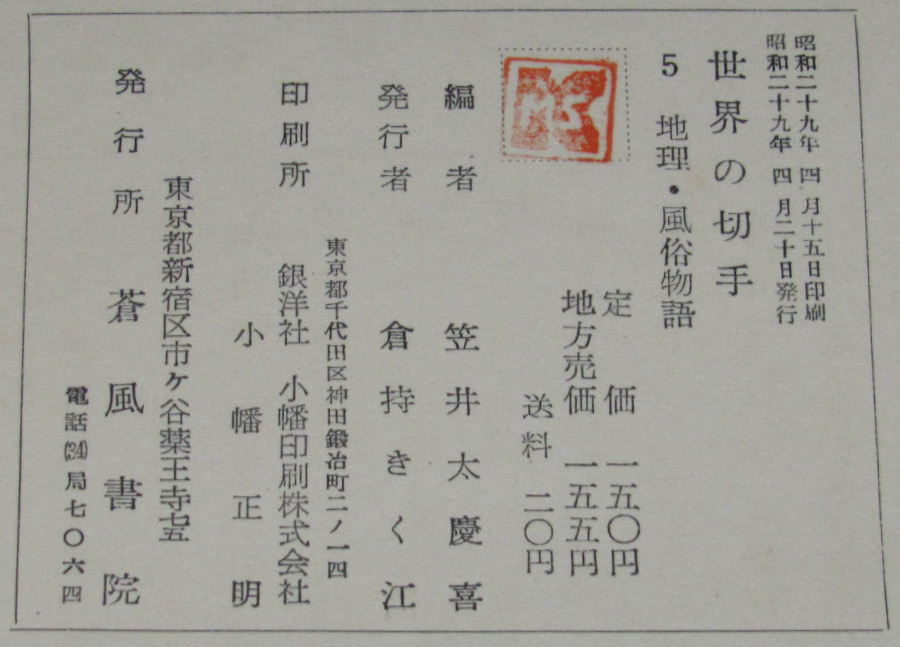 昭和二十九年 四 月十五日印刷
昭和二十九年 四 月二十日発行
世界の切手
5 地理・風俗物語
定価 一五〇円
地方売価 一五五円
送料 二〇円
編者 笠井太慶喜
発行者 倉持きく江
東京都千代田区神田鍛冶町二ノ一四
印刷所 銀洋社 小幡印刷株式会社
小幡正明
東京都新宿区市ケ谷薬王寺
発行所 蒼風書院
電話(34)局七〇六四